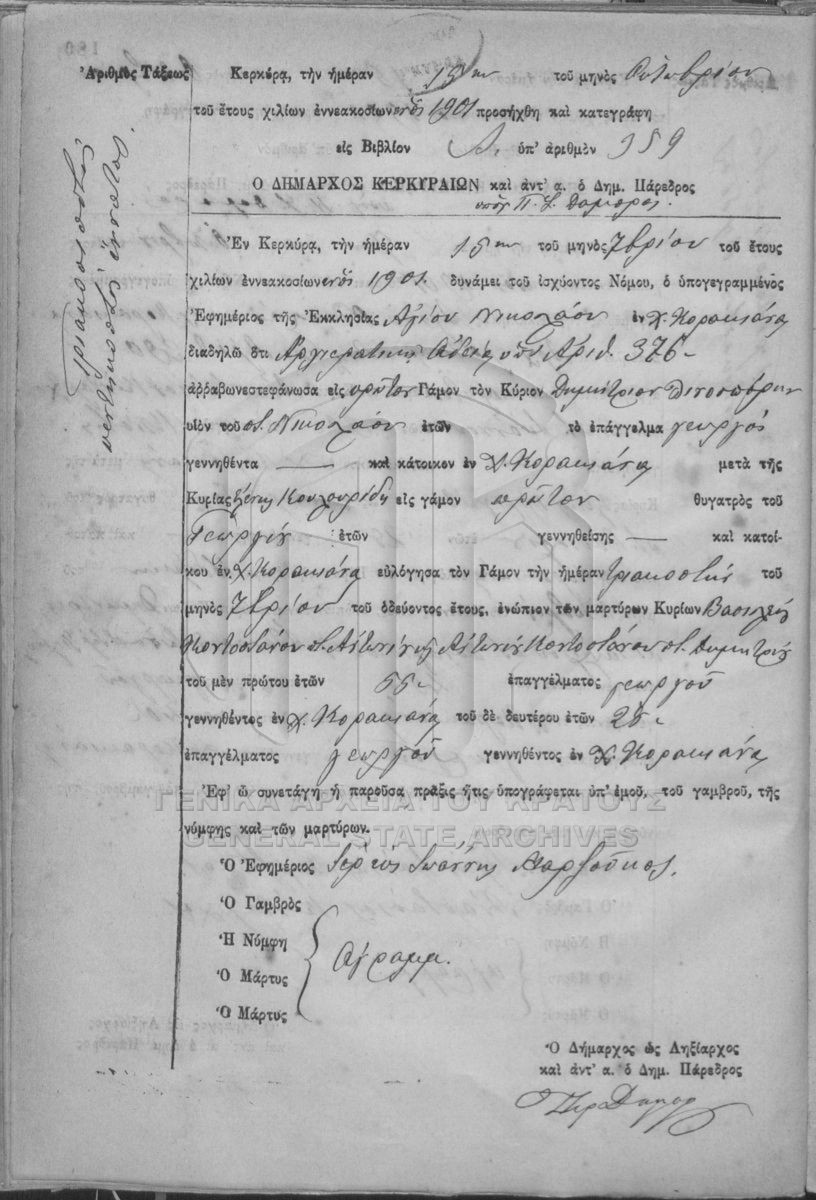 Ἀριθμὸς Τάξεως
τριακοσιοστὸς
πεντηκοστὸς ἔννατος.
Κερκύρᾳ, τὴν ἡμέραν 15ην τοῦ μηνὸς Ὀκτωβρίου
τοῦ ἔτους χιλίων ἐννεακοσίων ἑνὸς 1901 προσήχθη καὶ κατεγράφη
εἰς Βιβλίον Α. ὑπ' ἀριθμὸν 359
Ο ΔΗΜΑΡΧΟΣ ΚΕΡΚΥΡΑΙΩΝ καὶ ἀντ' α. ὁ Δημ. Πάρεδρος
Ἐν Κερκύρᾳ, τὴν ἡμέραν 15ην τοῦ μηνὸς 7βρίου τοῦ ἔτους
χιλίων ἐννεακοσίων ἑνὸς 1901. δυνάμει τοῦ ἰσχύοντος Νόμου, ὁ ὑπογεγραμμένος
Ἐφημέριος τῆς Ἐκκλησίας Ἁγίου Νικολάου ἐν χ. Κορακιάνα
διαδηλῶ ὅτι Ἀρχιερατικῇ Ἀδείᾳ ὑπ' Ἀριθ. 376
ἀρραβωνεστεφάνωσα εἰς πρῶτον Γάμον τὸν Κύριον Δημήτριον
υἱὸν τοῦ π. Νικολάου ἐτῶν τὸ ἐπάγγελμα γεωργὸς
γεννηθέντα — καὶ κάτοικον ἐν χ. Κορακιάνα μετὰ τῆς
Κυρίας Κουλουρίδη εἰς γάμον πρῶτον θυγατρὸς τοῦ
Γεωργίου ἐτῶν γεννηθείσης — καὶ κατοί-
κου ἐν χ. Κορακιάνα εὐλόγησα τὸν Γάμον τὴν ἡμέραν τριακοστὴν τοῦ
μηνὸς 7βρίου τοῦ ὁδεύοντος ἔτους, ἐνώπιον τῶν μαρτύρων Κυρίων Βασιλείου
Κοντοστάνου π. Ἀντωνίου καὶ Ἀντωνίου Κοντοστάνου π. Δημητρίου
τοῦ μὲν πρώτου ἐτῶν 55 ἐπαγγέλματος γεωργοῦ
γεννηθέντος ἐν χ. Κορακιάνα τοῦ δὲ δευτέρου ἐτῶν 25
ἐπαγγέλματος γεωργοῦ γεννηθέντος ἐν χ. Κορακιάνα
Ἐφ' ᾧ συνετάγη ἡ παροῦσα πρᾶξις ἥτις ὑπογράφεται ὑπ' ἐμοῦ, τοῦ γαμβροῦ, τῆς
νύμφης καὶ τῶν μαρτύρων.
ΓΕΝΙΚΑ ΑΡΧΕΙΑ ΤΟΥ ΚΡΑΤΟΥΣ
GENERAL STATE ARCHIVES
Ὁ Ἐφημέριος Ἱερεὺς Ἰωάννης
Ὁ Γαμβρὸς
Ἡ Νύμφη
Ὁ Μάρτυς
Ὁ Μάρτυς
Ἀγράμμ.
Ὁ Δήμαρχος ὡς Ληξίαρχος
καὶ ἀντ' α. ὁ Δημ. Πάρεδρος